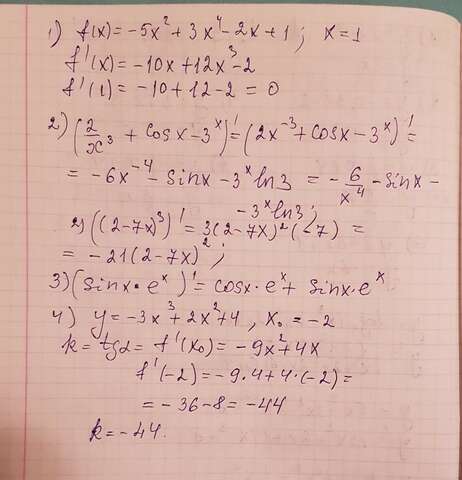 1) f(x) = -5x² + 3x⁴ - 2x + 1; x = 1
f'(x) = -10x + 12x³ - 2
f'(1) = -10 + 12 - 2 = 0
2) (2/x³ + cosx - 3ˣ)' = (2x⁻³ + cosx - 3ˣ)' =
= -6x⁻⁴ - sinx - 3ˣ ln3 = -6/x⁴ - sinx -
- 3ˣ ln3;
2) ((2-7x)³)' = 3(2-7x)² (-7) =
= -21(2-7x)²;
3) (sinx · eˣ)' = cosx · eˣ + sinx · eˣ
4) y = -3x³ + 2x² + 4, x₀ = -2
k = tgα = f'(x₀) = -9x² + 4x
f'(-2) = -9·4 + 4·(-2) =
= -36 - 8 = -44
k = -44.